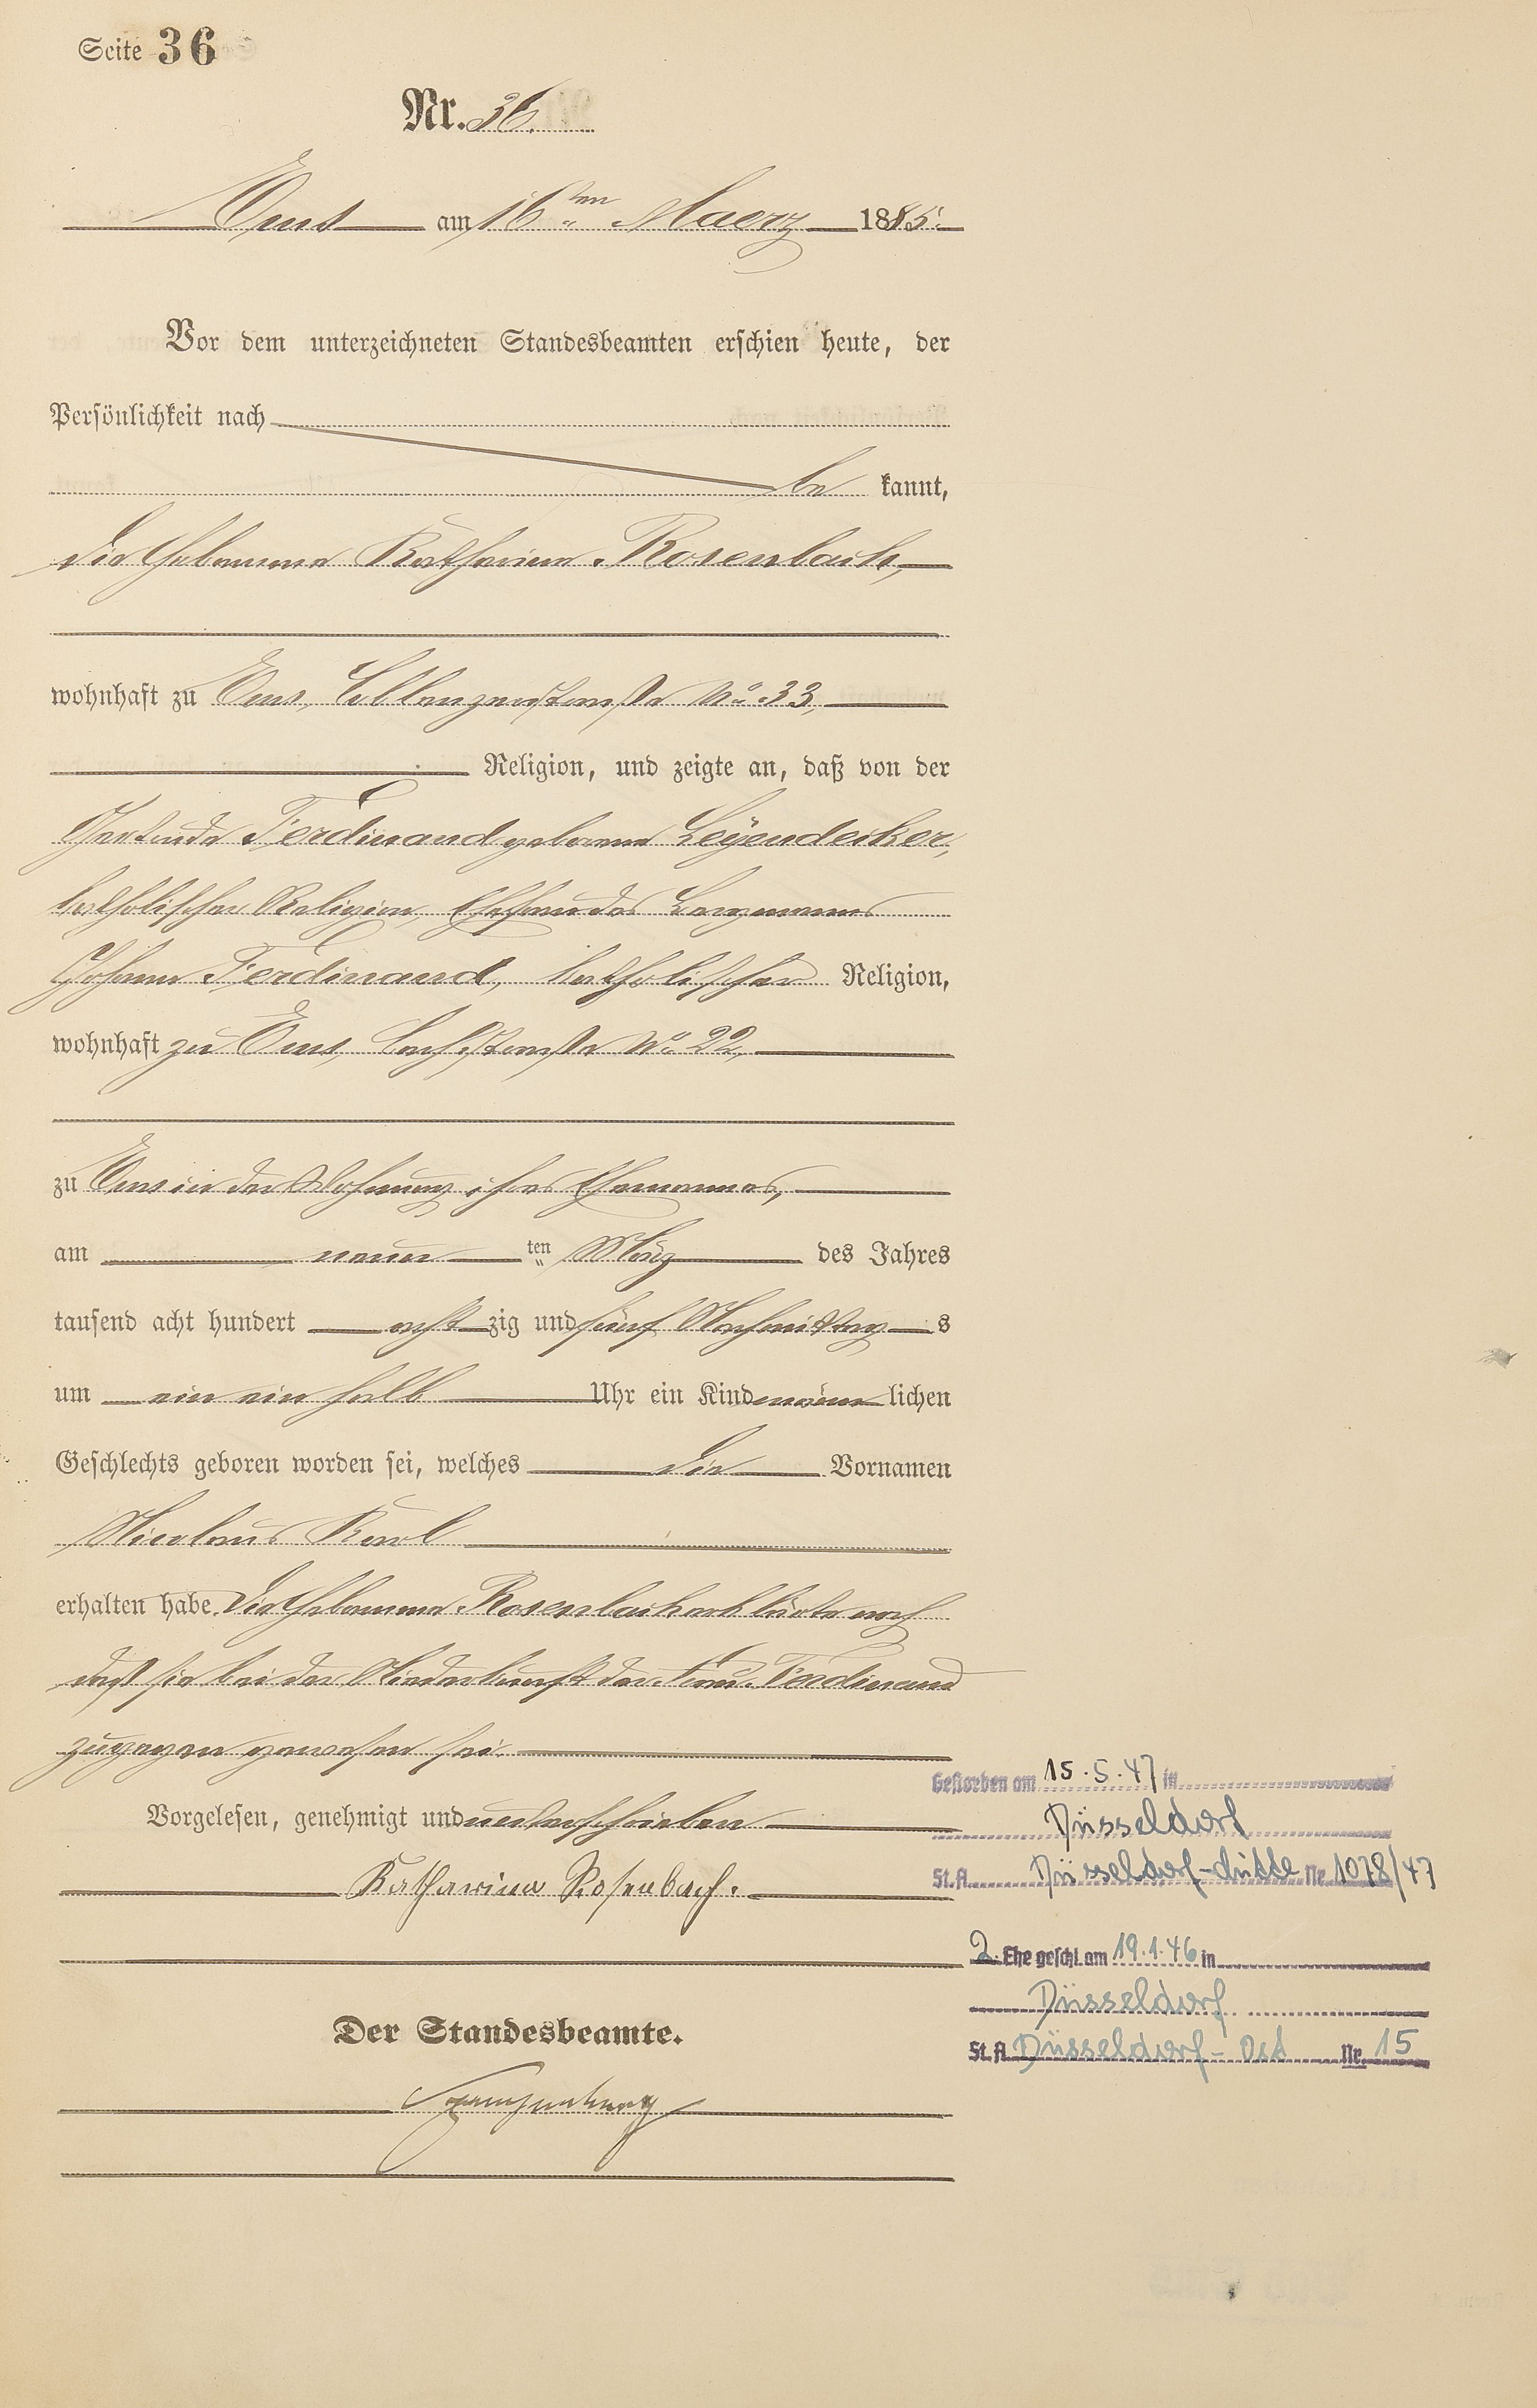 Seite 36
Nr. 36.
Ems am 16ten Maerz 1885.
Vor dem unterzeichneten Standesbeamten erschien heute, der
Persönlichkeit nach
be kannt,
die Hebamme Katharina Rosenbach,
wohnhaft zu Ems, Coblenzerstraße No 33,
Religion, und zeigte an, daß von der
Gertrude Ferdinand geborene Leyendecker,
katholischer Religion, Ehefrau des Bergmanns
Johann Ferdinand, katholischer Religion,
wohnhaft zu Ems, Bachstraße No 22,
zu Ems in der Wohnung ihres Ehemannes,
am neun ten März des Jahres
tausend acht hundert acht zig und fünf Nachmittag s
um ein ein halb Uhr ein Kind männ lichen
Geschlechts geboren worden sei, welches die Vornamen
Nicolaus Karl
erhalten habe. Die Hebamme Rosenbach erklärte noch
daß sie bei der Niederkunft der Frau Ferdinand
zugegen gewesen sei.
Vorgelesen, genehmigt und unterschrieben
Katharina Rosenbach.
Der Standesbeamte.
Gestorben am 15.5.47 in
Düsseldorf
St.A. Düsseldorf-Mitte Nr. 1078/47
2. Ehe geschl. am 19.1.46 in
Düsseldorf
St.A. Düsseldorf-Ost Nr. 15